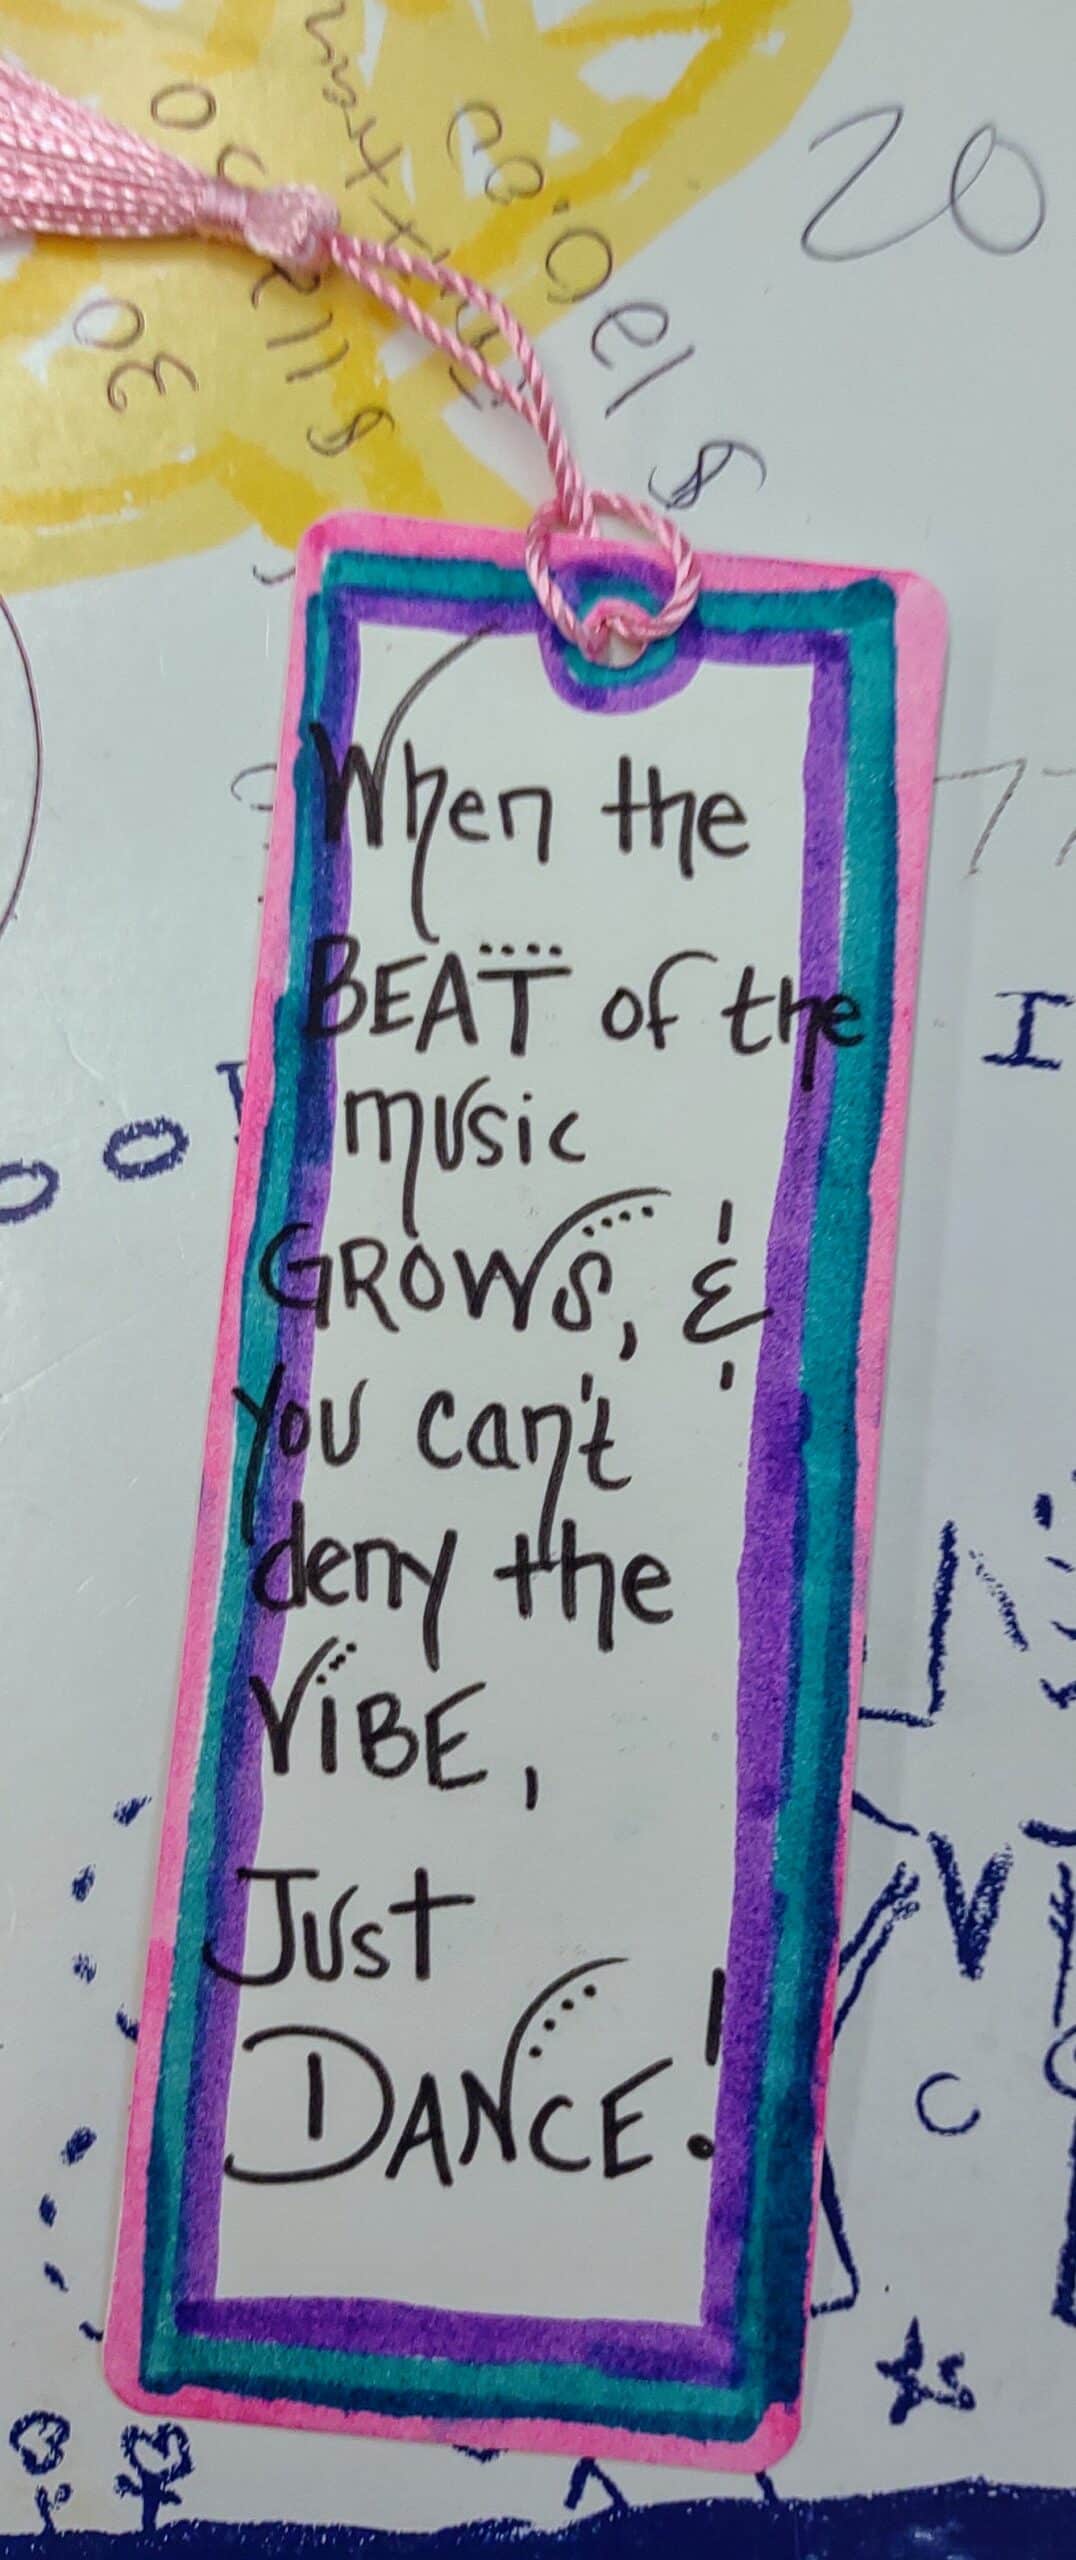 20
30
8
When the
BEAT of the
music
GROWS, &
you can't
deny the
VIBE,
Just
DANCE!